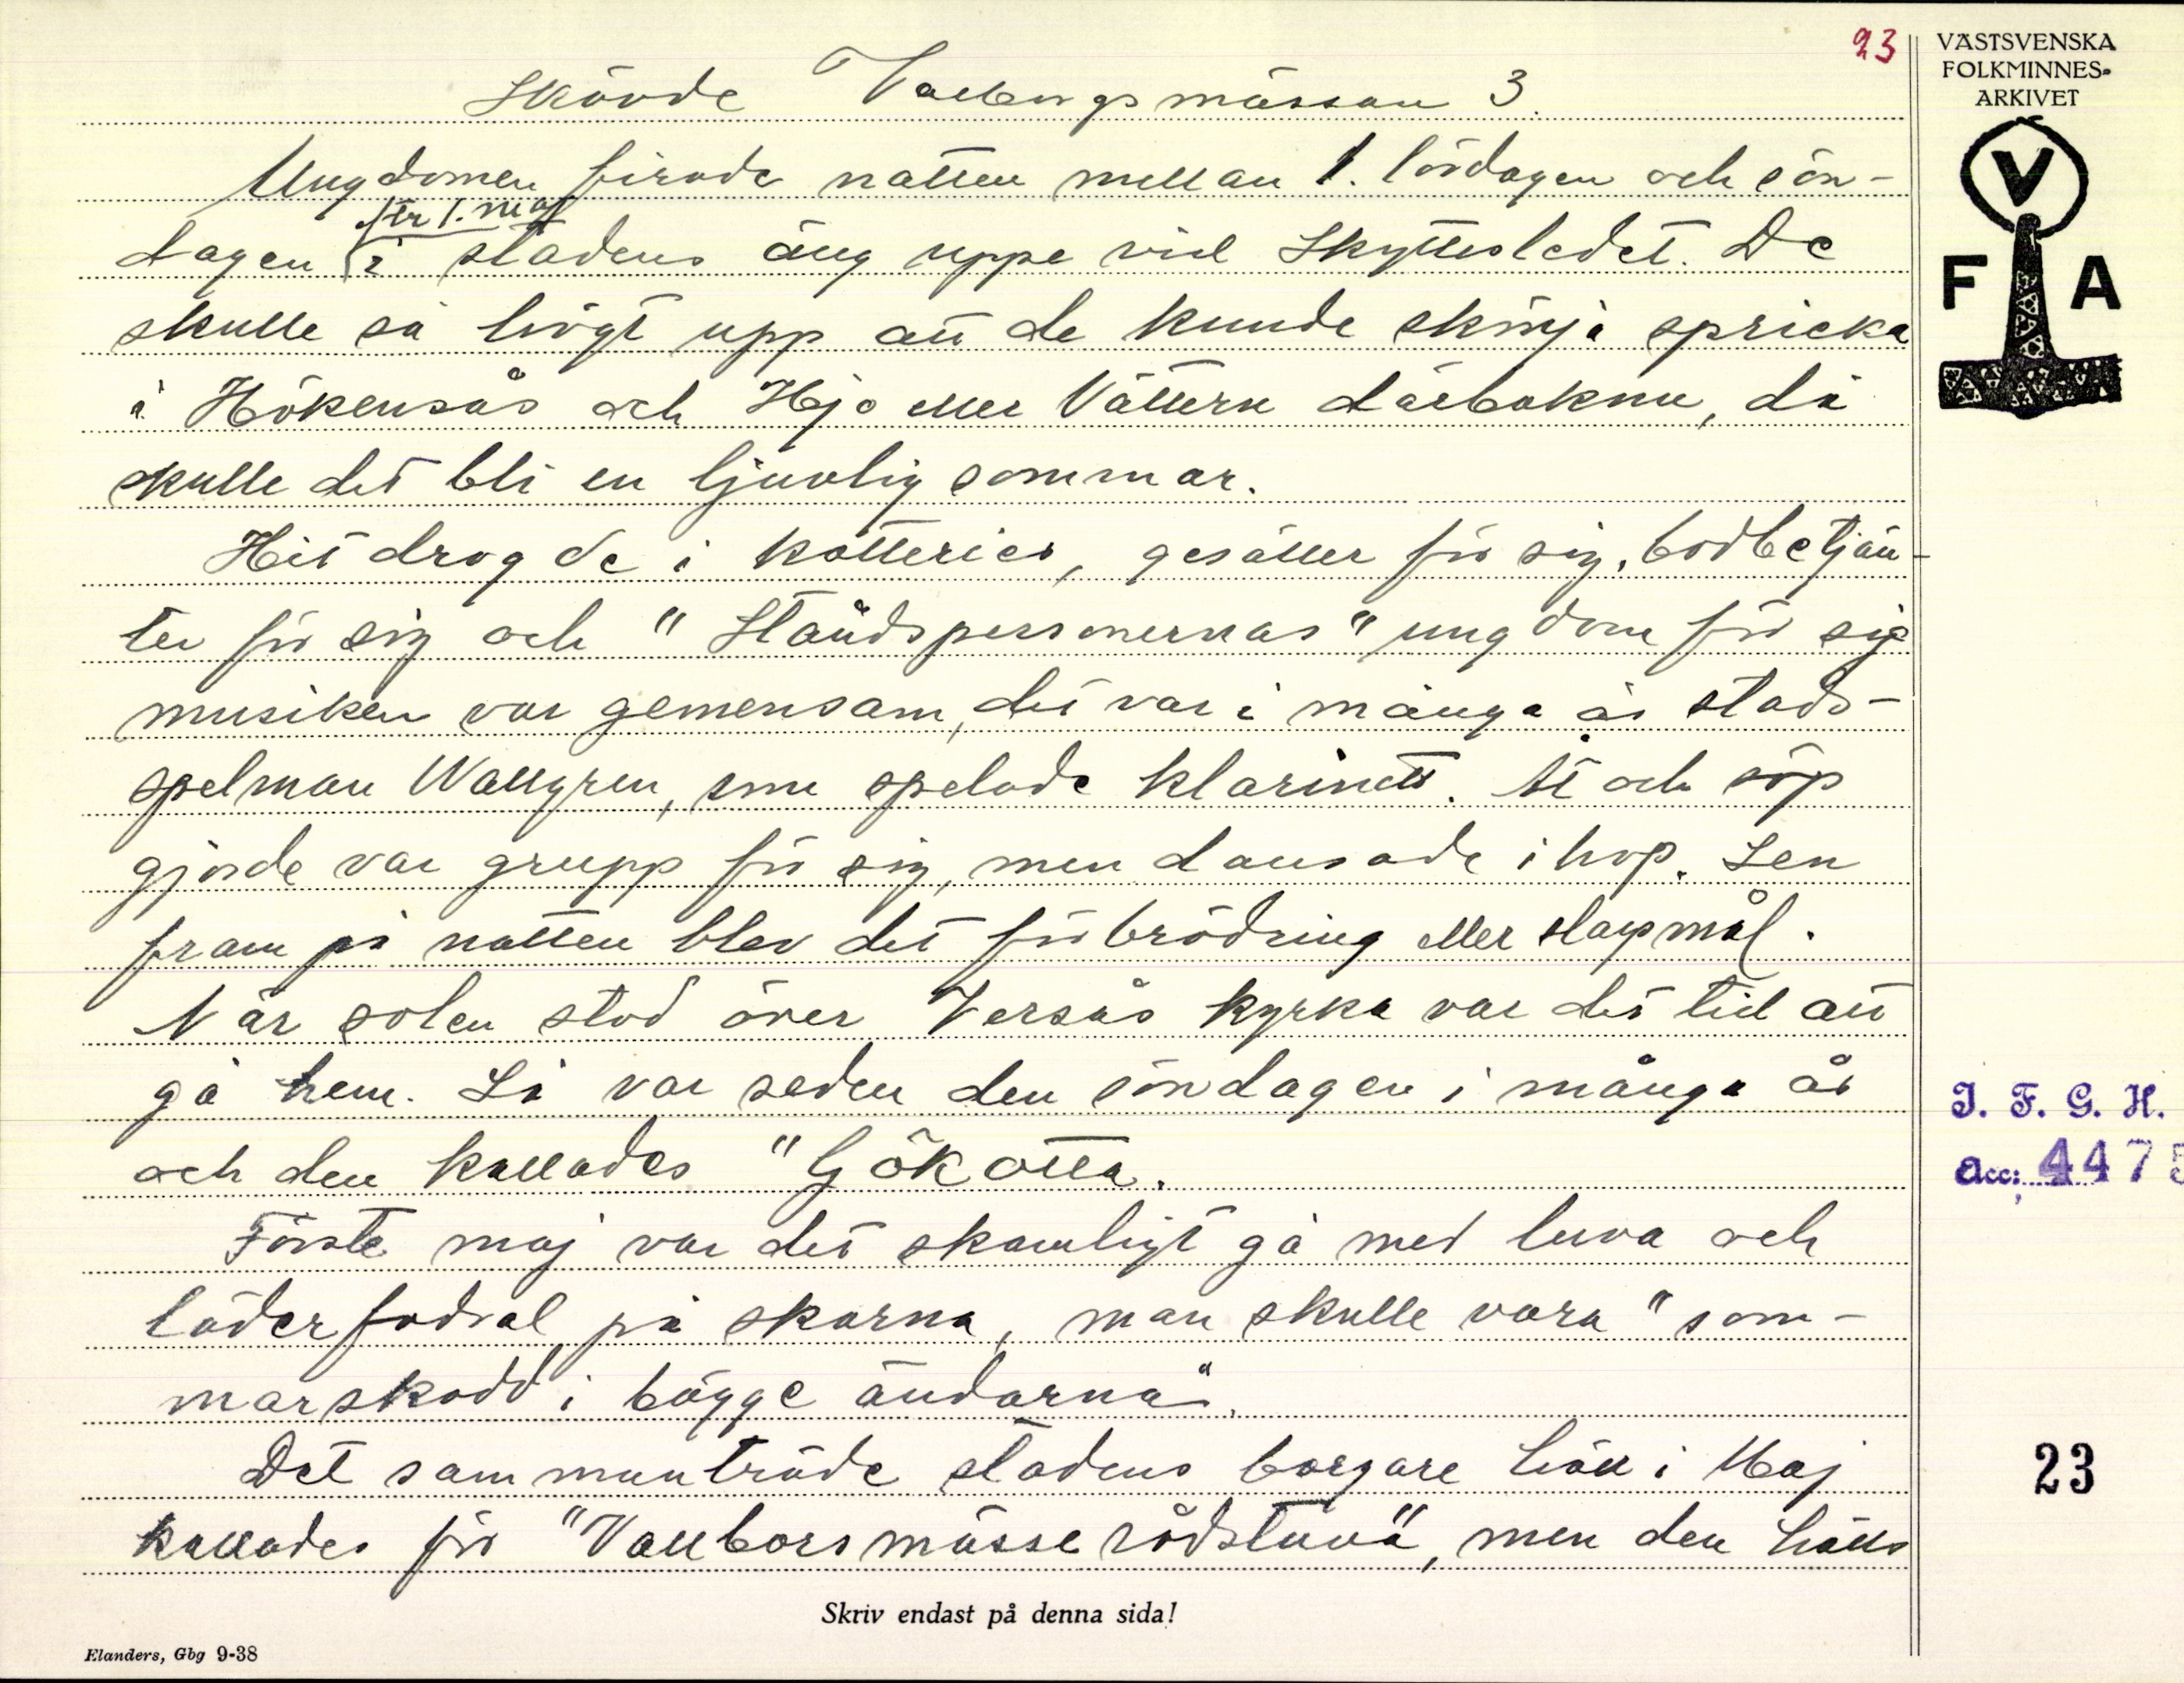 23
VÄSTSVENSKA
FOLKMINNES-
ARKIVET
V
F A
Skövde Valborgsmässan 3.
Ungdomen firade natten mellan 1. lördagen och sön-
efter 1. maj
dagen i stadens äng uppe vid Skyttesledet. De
skulle så högt upp att de kunde skönja spricka
i Hökensås och Hjo eller Vättern därbakom, då
skulle det bli en ljuvlig sommar.
Hit drog de i kotterier, gesäller för sig, bodbetjän-
ter för sig och "Ståndspersonernas" ungdom för sig
musiken var gemensam, det var i många år stads-
spelman Wallgren, som spelade klarinett. Åt och söp
gjorde var grupp för sig, men dansade ihop. Sen
fram på natten blev det förbrödring eller slagsmål.
När solen stod över Versås kyrka var det tid att
gå hem. Så var seden den söndagen i många år
och den kallades "Gökotta.
Förste maj var det skamligt gå med luva och
läderfodral på skorna, man skulle vara "som-
marskodd i bägge ändarna".
Det sammanträde stadens borgare höll i Maj
kallades för "Vallborsmässe rådstuva", men den hölls
J. F. G. H.
Acc: 4475
23
Skriv endast på denna sida!
Elanders, Gbg 9-38